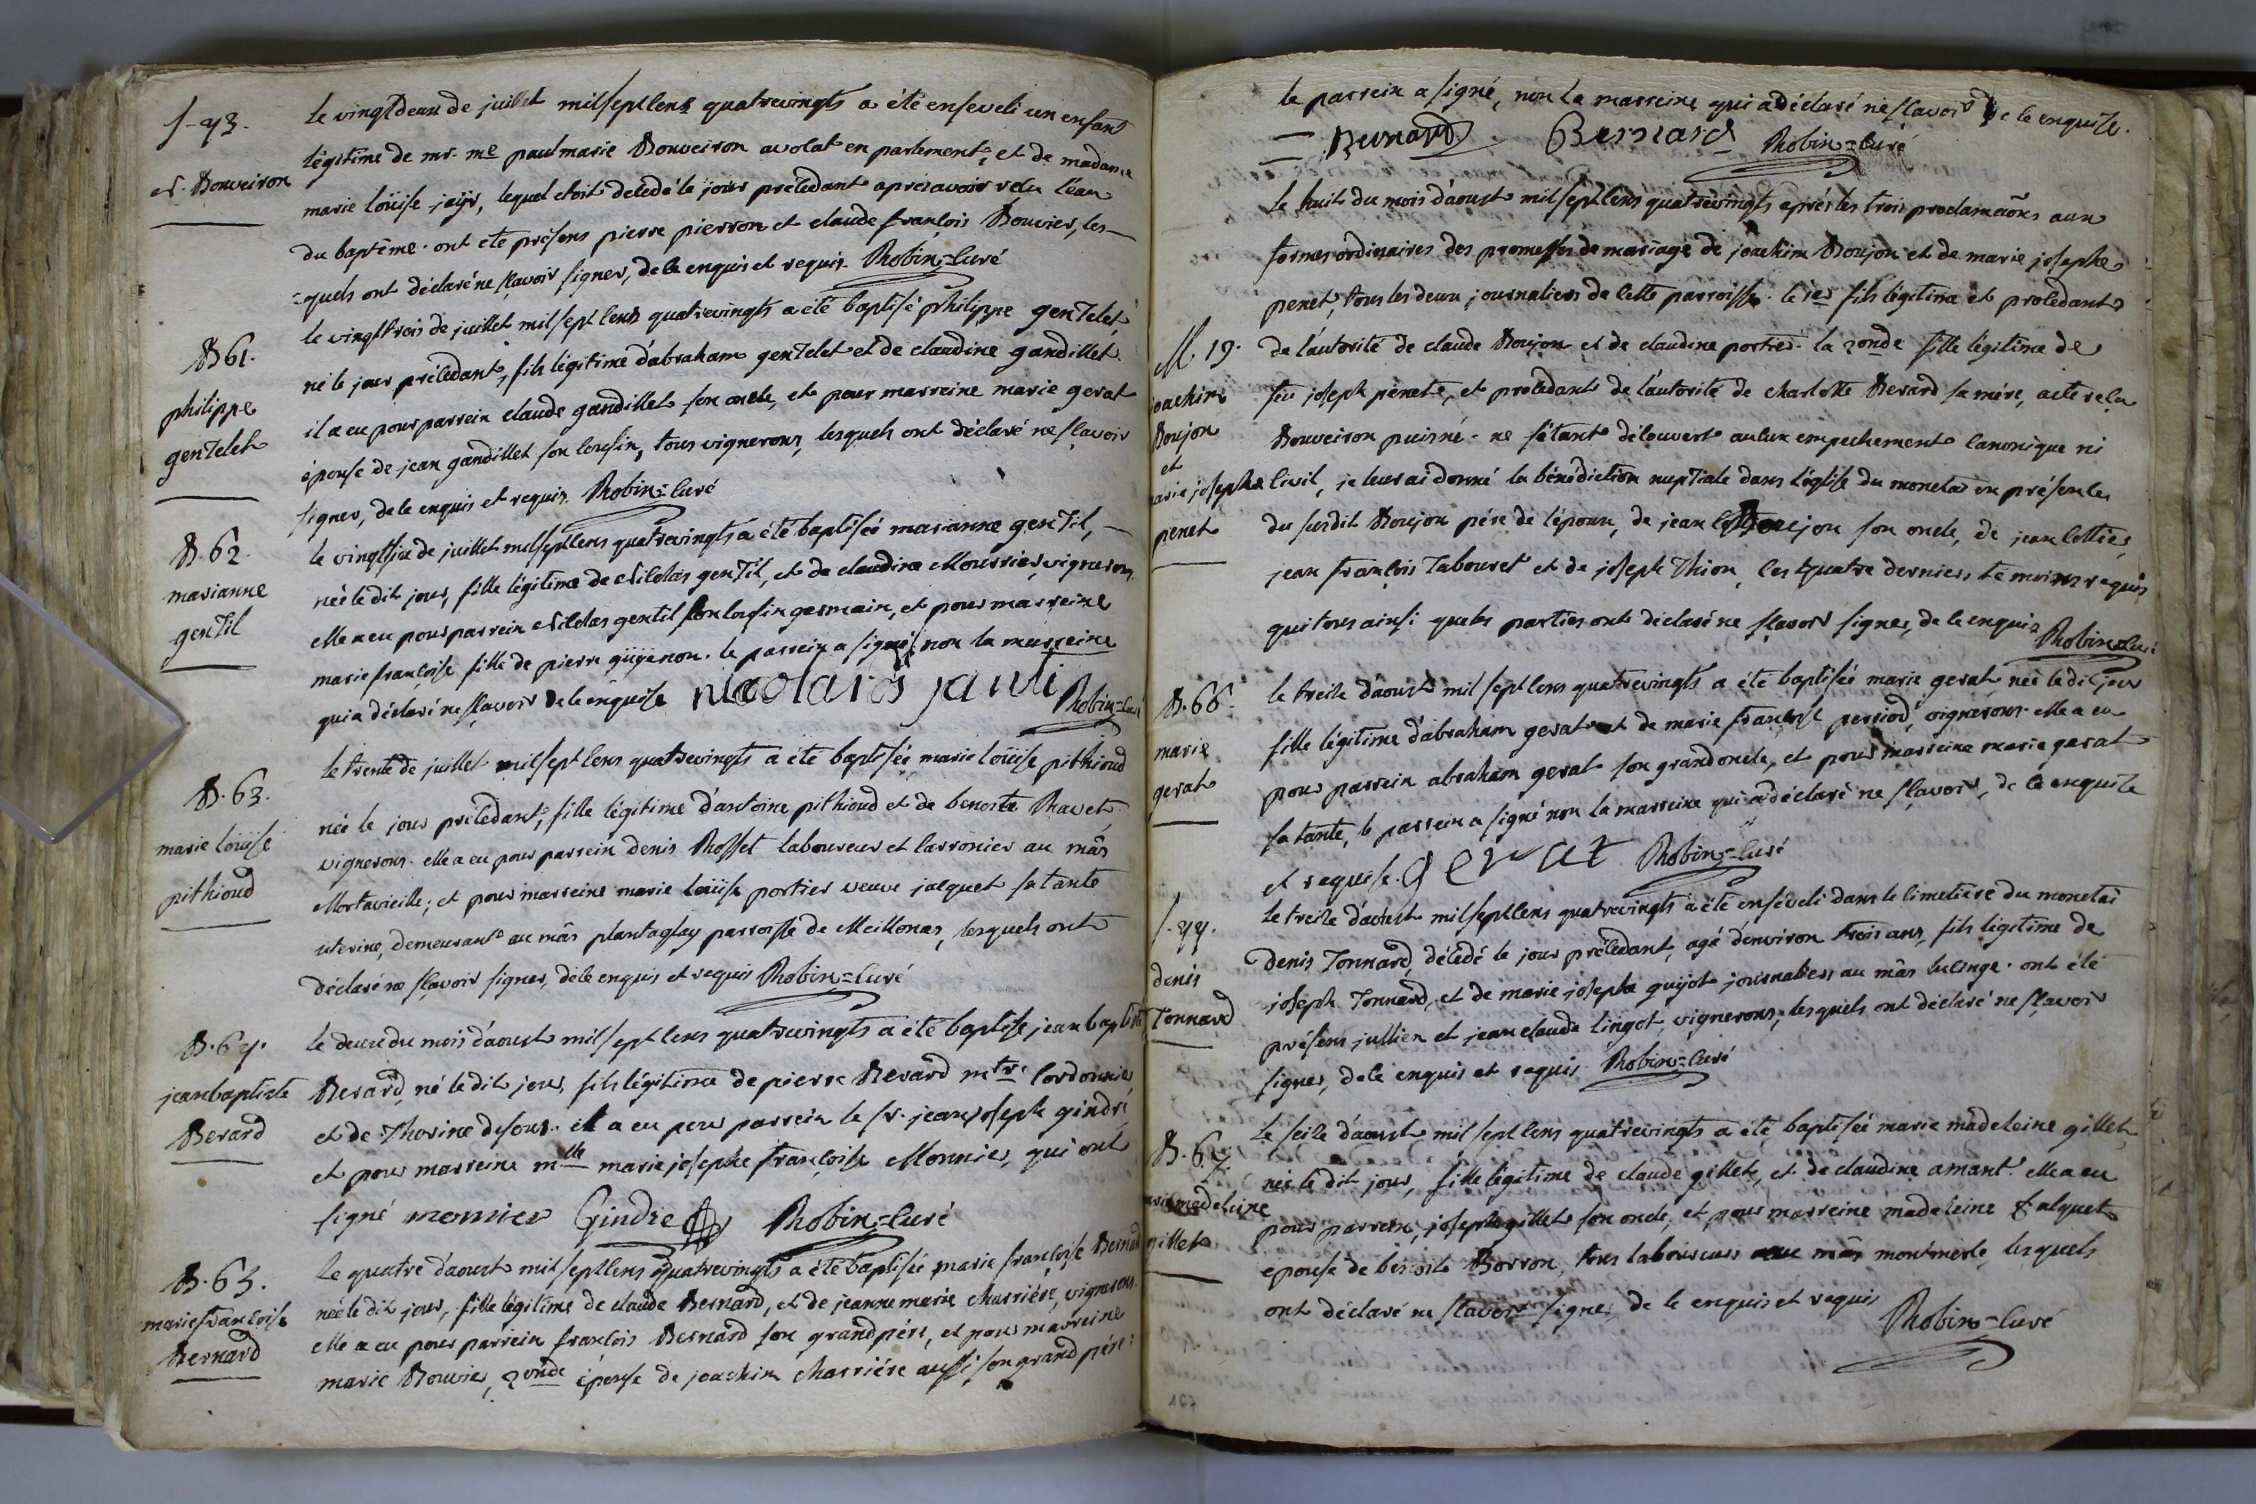 S. 43.
N. Bouveiron
le vingtdeux de juillet mil sept cens quatrevingts a été enseveli un enfant
légitime de mr. me paul marie Bouveiron avocat en parlement, et de madame
marie loüise jaÿr, lequel etoit décédé le jour précédant aprés avoir reçu l'eau
du baptême. ont été présens pierre pierron et claude françois Bouvier, les-
-quels ont déclaré ne sçavoir signer, de ce enquis et requis. Robin=Curé
B 61.
philippe
gentelet
le vingttrois de juillet mil sept cens quatrevingts a été baptisé philippe gentelet,
né le jour précédant, fils légitime d'abraham gentelet et de claudine gandillet.
il a eu pour parrein claude gandillet son oncle, et pour marreine marie gerat
épouse de jean gandillet son cousin, tous vignerons, lesquels ont déclaré ne sçavoir
signer, de ce enquis et requis. Robin=Curé
B. 62.
marianne
gentil
le vingtsix de juillet mil sept cens quatrevingts a été baptisée marianne gentil,
née le dit jour, fille légitime de Nicolas gentil, et de claudine Mourrier, vignerons.
elle a eu pour parrein Nicolas gentil son cousin germain, et pour marreine
marie françoise fille de pierre guÿenon. le parrein a signé, non la marreine
qui a déclaré ne sçavoir de ce enquise nicolaras janti Robin=Curé
B. 63.
marie loüise
pithioud
le trente de juillet mil sept cens quatrevingts a été baptisée marie loüise pithioud
née le jour précédant, fille légitime d'antoine pithioud et de benoite Ravet
vignerons. elle a eu pour parrein denis Rosset laboureur et carronier au mâs
Mortavieille; et pour marreine marie loüise portier veuve jacquet sa tante
uterine, demeurant au mâs plantaglay parroisse de Meillonas, lesquels ont
déclaré ne sçavoir signer, de ce enquis et requis Robin=Curé
B. 64.
jean baptiste
Berard
le deux du mois d'aoust mil sept cens quatrevingts a été baptisé jean baptiste
Berard, né le dit jour, fils légitime de pierre Berard mtre. Cordonnier,
et de Thorine dufour. il a eu pour parrein le sr. jean joseph gindré
et pour marreine mlle marie josephe françoise Monnier, qui ont
signé monnier Gindre Robin=Curé
B. 65.
marie françoise
Bernard
le quatre d'aoust mil sept cens quatrevingts a été baptisée marie françoise Bernard
née le dit jour, fille légitime de claude Bernard, et de jeanne marie charriére, vignerons.
elle a eu pour parrein françois Bernard son grand pére, et pour marreine
marie Bouvier, 2onde épouse de joachim charriére aussi son grand pére:
le parrein a signé, non la marreine qui a déclaré ne sçavoir de ce enquise.
Bernard Bernard Robin=Curé
M. 19.
joachim
Boujon
et
marie josephe
penet
le huit du mois d'aoust mil sept cens quatrevingts aprés les trois proclamaôns aux
formes ordinaires des promesses de mariage de joachim Boujon et de marie josephe
penet, tous les deux journaliers de cette parroisse. le 1er fils légitime et procedant
de l'autorité de claude Boujon et de claudine portier. la 2onde fille légitime de
feu joseph penet, et procedant de l'autorité de charlotte Berard sa mére, acte reçu
Bouveiron puisné. ne s'étant découvert aucun empechement canonique ni
civil, je leur ai donné la bénédiction nuptiale dans l'église du monetai en présence
du susdit Boujon pére de l'époux, de jean Boujon son oncle, de jean cottier,
jean françois Tabouret et de joseph Thion, les quatre derniers témoins requis
qui tous ainsi que les parties ont déclaré ne sçavoir signer, de ce enquis Robin=Curé
B. 66.
marie
gerat
le treize d'aoust mil sept cens quatrevingts a été baptisée marie gerat née le dit jour
fille légitime d'abraham gerat et de marie françoise perriod, vignerons. elle a eu
pour parrein abraham gerat son grand oncle, et pour marreine marie gerat
sa tante, le parrein a signé non la marreine qui a déclaré ne sçavoir, de ce enquise
et requise. gerat Robin=Curé
S. 44.
denis
Tonnard
le treize d'aoust mil sept cens quatrevingts a été enséveli dans le cimetiére du monetai
denis Tonnard, décédé le jour précédant, agé d'environ trois ans, fils légitime de
joséph Tonnard, et de marie josephe guijot journaliers au mâs lucinge. ont été
présens jullien et jean claude lingot, vignerons, lesquels ont déclaré ne sçavoir
signer, de ce enquis et requis. Robin=Curé
B. 67
marie madeleine
gillet
le seize d'aoust mil sept cens quatrevingts a été baptisée marie madeleine gillet,
née le dit jour, fille légitime de claude gillet, et de claudine amant. elle a eu
pour parrein, joseph gillet son oncle, et pour marreine madeleine falquet
epouse de benoit Borron, tous laboureurs au mâs montmerle, lesquels
ont déclaré ne sçavoir signer, de ce enquis et requis
Robin=Curé